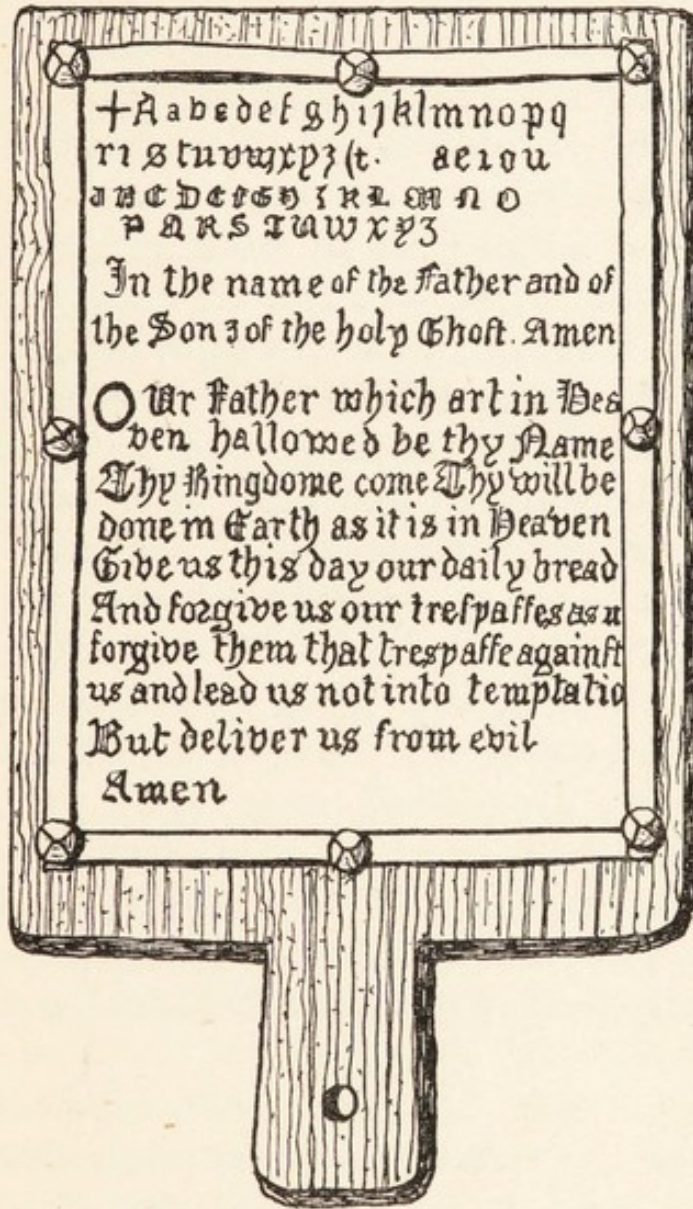 +Aabcdefghijklmnopq
rı s tuvwxyzꝫ(t. aeıou
ABCDEFGHIKLMNO
PQRSTUWXYZ
In the name of the Father and of
the Son ꝫ of the holy Ghoſt. Amen
OUr Father which art in Hea
ven hallowed be thy Name
Thy Kingdome come Thy will be
done in Earth as it is in Heaven
Give us this day our daily bread
And forgive us our treſpaſſes as w
forgive them that treſpaſſe againſt
us and lead us not into temptatio
But deliver us from evil
Amen